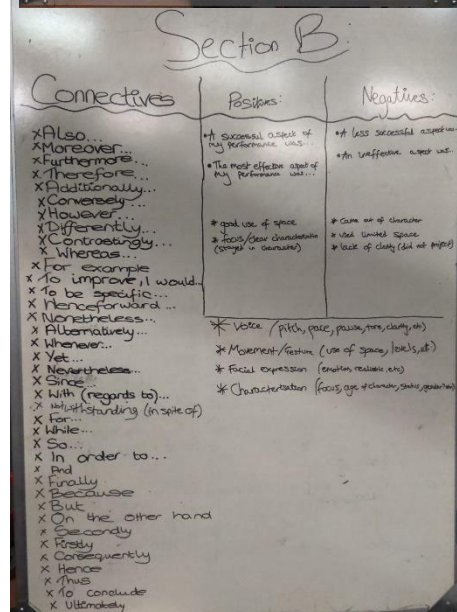 Section B:
Connectives
x Also...
x Moreover...
x Furthermore...
x Therefore...
x Additionally...
x Conversely...
x However...
x Differently...
x Contrastingly...
x Whereas...
x For example
x To improve, I would...
x To be specific...
x Henceforward...
x Nonetheless...
x Alternatively...
x Whenever...
x Yet...
x Nevertheless...
x Since...
x With (regards to)...
x Notwithstanding (in spite of)
x For...
x While...
x So...
x In order to...
x And
x Finally
x Because
x But
x On the other hand
x Secondly
x Firstly
x Consequently
x Hence
x Thus
x To conclude
x Ultimately
Positives:
• A successful aspect of
my performance was...
• The most effective aspect of
my performance was...
* good use of space
* focus/clear characterisation
(stayed in character)
Negatives:
• A less successful aspect was...
• An ineffective aspect was...
* Came out of character
* used limited space
* lack of clarity (did not project)
* Voice (pitch, pace, pause, tone, clarity, etc)
* Movement/Gesture (use of space, levels, etc)
* Facial expression (emotion, realistic, etc)
* Characterisation (focus, age of character, status,